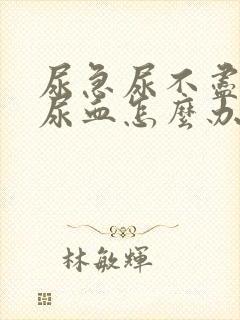 尿急尿不盡
尿血怎麼办
林敏輝